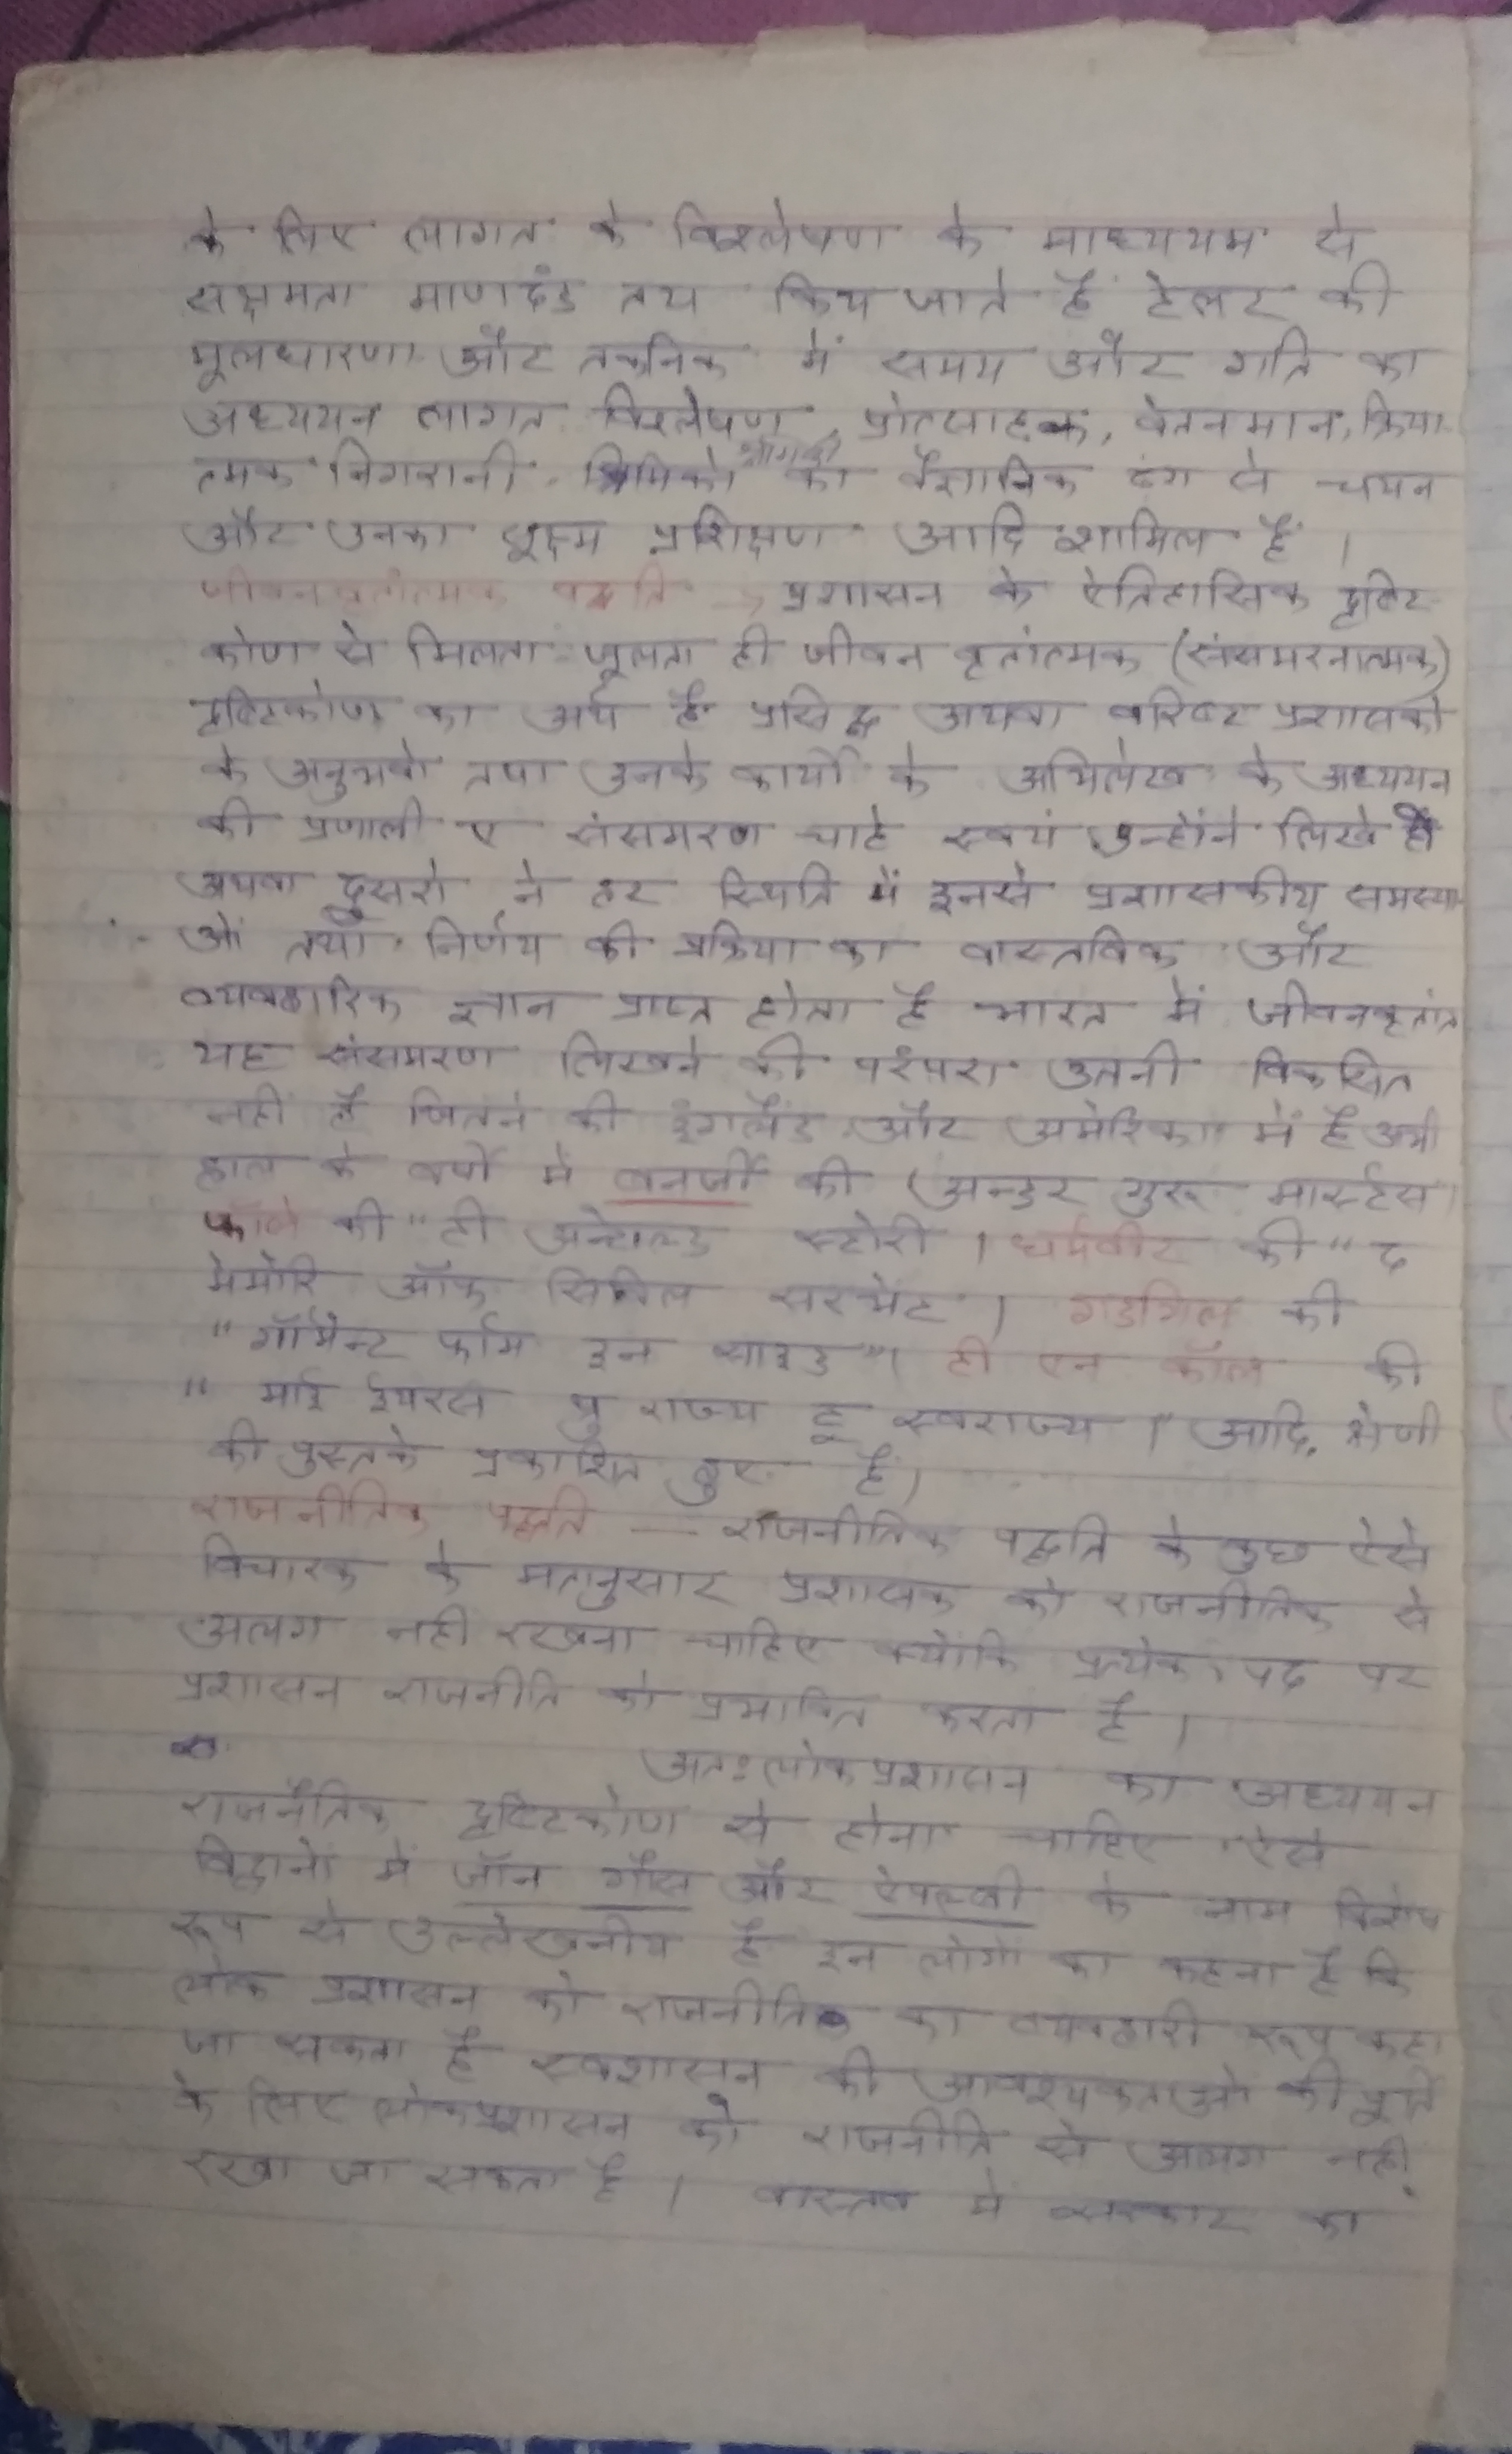 के लिए लागत के विश्लेषण के माध्ययम से
सक्षमता माणदंड तय किय जाते हैं टेलर की
मूलधारणा और तकनिक में समय और गति का
अध्ययन लागत विश्लेषण, प्रोत्साहक, वेतनमान, क्रिया-
त्मक निगरानी, श्रमिको का वैज्ञानिक ढंग से चयन
और उनका सूक्ष्म प्रशिक्षण आदि शामिल हैं ।
जीवनवृतांत्मक पद्धति → प्रशासन के ऐतिहासिक दृष्टि-
कोण से मिलता जूलता ही जीवन वृतांत्मक (संसमरनात्मक)
दृष्टिकोण का अर्थ है प्रसिद्ध अथवा वरिष्ट प्रशासको
के अनुभवो तथा उनके कार्यो के अभिलेख के अध्ययन
की प्रणाली ए संसमरण चाहे स्वयं उन्होंने लिखे हो
अथवा दुसरो ने हर स्थिति में इनसे प्रशासकीय समस्या-
ओं तथा निर्णय की प्रक्रिया का वास्तविक और
व्यवहारिक ज्ञान प्राप्त होता है भारत में जीवनवृतांत
यह संसमरण लिखने की परंपरा उतनी विकसित
नही है जितने की इंगलैंड और अमेरिका में है अभी
हाल के वर्षो में बनर्जी की (अन्डर मास्टर्स
की "टी अन्टोल्ड स्टोरी । धर्मवीर की "द
मेमोरि ऑफ सिविल सरभेंट । गडगिल की
"गॉमेन्ट फ्रॉम इन साइड"। टी एन कॉल की
"माई ईयरस थ्रु राज्य टू स्वराज्य ।" आदि, श्रेणी
की पुस्तके प्रकाशित हुए हैं।
राजनीतिक पद्धति — राजनीतिक पद्धति के कुछ ऐसे
विचारक के मतानुसार प्रशासक को राजनीतिक से
अलग नही रखना चाहिए क्योंकि प्रत्येक पद पर
प्रशासन राजनीति को प्रभावित करता है ।
अतः लोकप्रशासन का अध्ययन
राजनैतिक दृष्टिकोण से होना चाहिए ऐसे
विद्वानो में जॉन गौस और ऐपल्बी के नाम विशेष
रूप से उल्लेखनीय है इन लोगो का कहना है कि
लोक प्रशासन को राजनीतिक का व्यवहारी रूप कहा
जा सकता है स्वशासन की आवश्यकताओ की पूर्ति
के लिए लोकप्रशासन को राजनीति से अलग नही
रखा जा सकता है । वास्तव में सरकार का